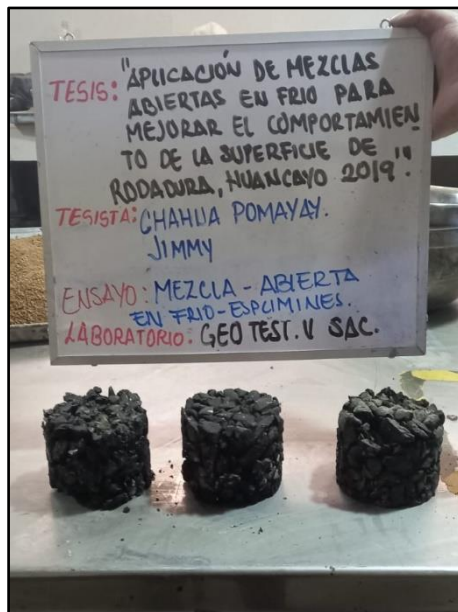 TESIS: "APLICACIÓN DE MEZCLAS
ABIERTAS EN FRIO PARA
MEJORAR EL COMPORTAMIEN-
TO DE LA SUPERFICIE DE
RODADURA, HUANCAYO 2019".
TESISTA: CHAHUA POMAYAY.
JIMMY
ENSAYO: MEZCLA - ABIERTA
EN FRIO - ESPCIMINES.
LABORATORIO: GEO TEST. V SAC.